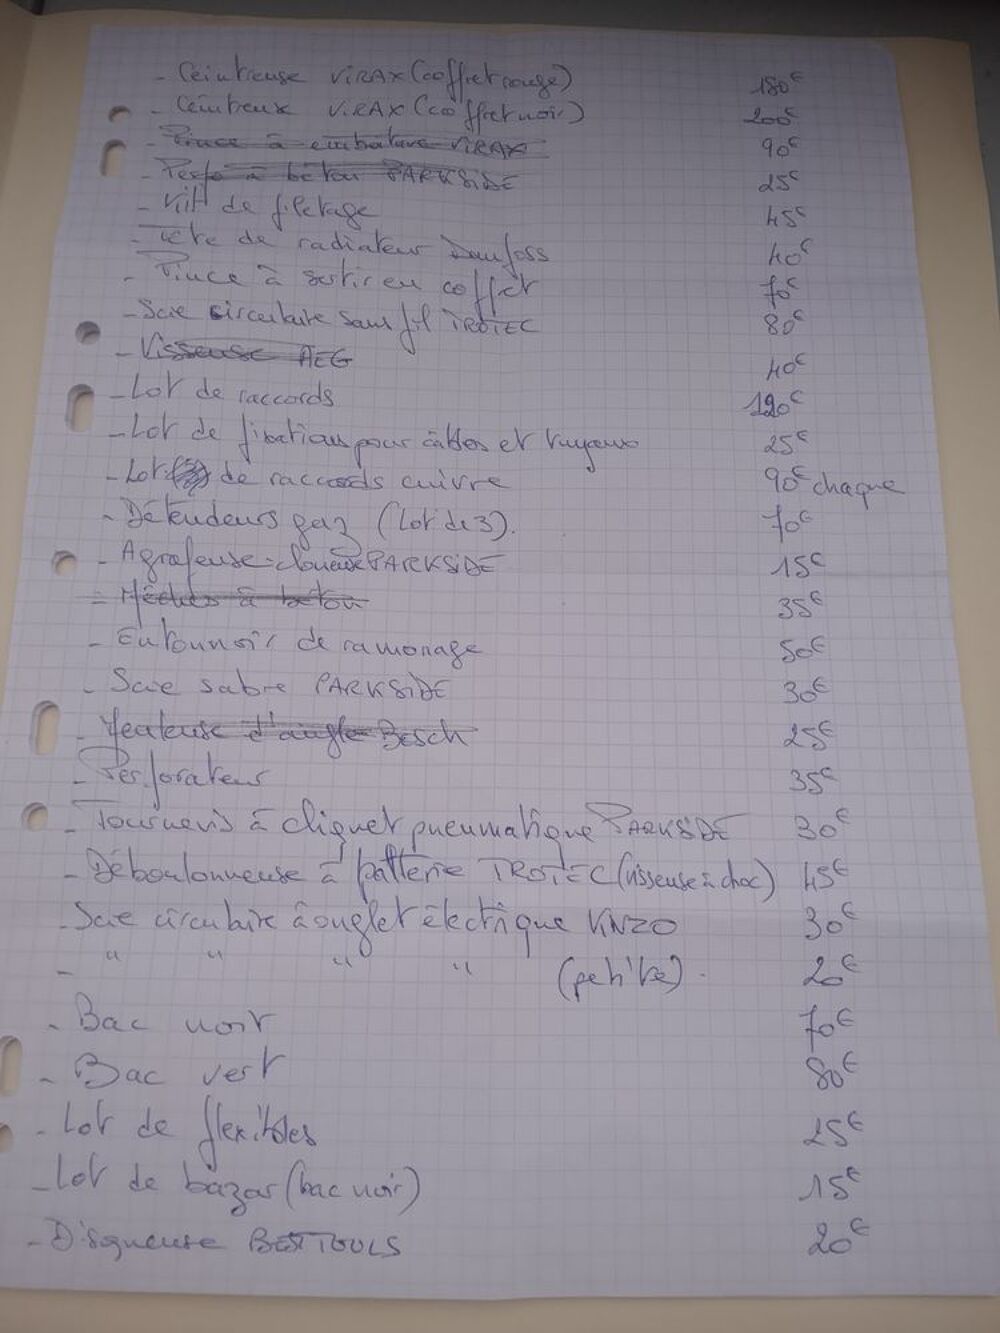 - Ceintreuse ViRAX (coffret rouge) 180€
- Ceintreux ViRAX (coffret noir) 200€
- Pince à emboiture ViRAX 90€
- Perfo à béton PARKSiDE 25€
- Kitt de filetage 45€
- Tète de radiateur Danfoss 40€
- Pince à sertir en coffret 70€
- Scie circulaire sans fil TROTEC 80€
- Visseuse AEG 40€
- Lot de raccords 120€
- Lot de fixations pour câbles et tuyaux 25€
- Lot de raccords cuivre 90€ chaque
- Détendeurs gaz (lot de 3). 70€
- Agrafeuse-cloueuse PARKSiDE 15€
- Mèches à béton 35€
- Entonnoir de ramonage 50€
- Scie sabre PARKSiDE 30€
- Meuleuse d'angle Bosch 25€
- Perforateur 35€
- Tournevis à cliquet pneumatique PARKSiDE 30€
- Déboulonneuse à batterie TROTEC (visseuse à choc) 45€
- Scie circulaire à onglet électrique KNZO 30€
- " " " " (petite). 20€
- Bac noir 70€
- Bac vert 80€
- Lot de flexibles 25€
- Lot de bazar (bac noir) 15€
- Disqueuse BESTTOOLS 20€